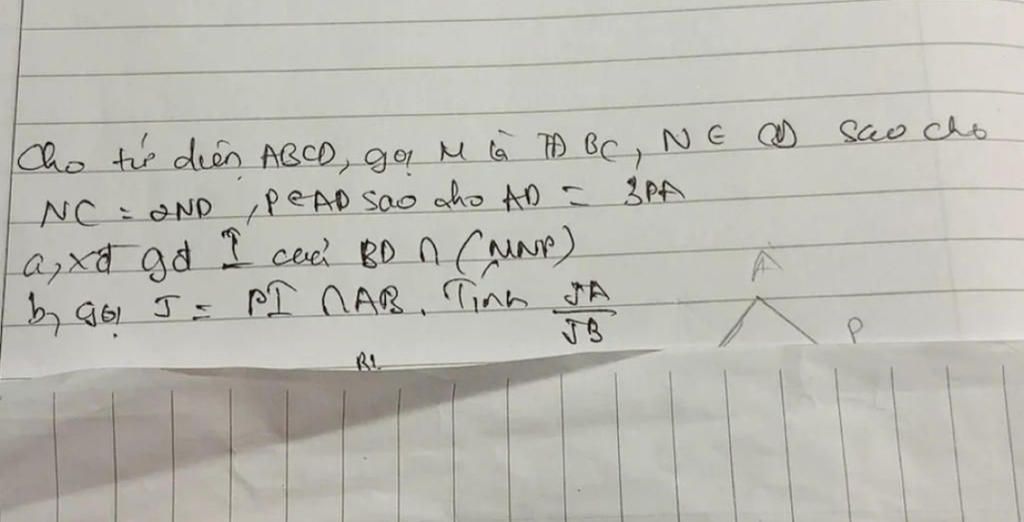 Cho tứ diện ABCD, gọi M là TĐ BC, N ∈ CD sao cho
NC = 2ND, P∈AD sao cho AD = 3PA
a, xđ gđ I của BD ∩ (MNP)
b, gọi J = PI ∩ AB. Tính JA/JB
A
P